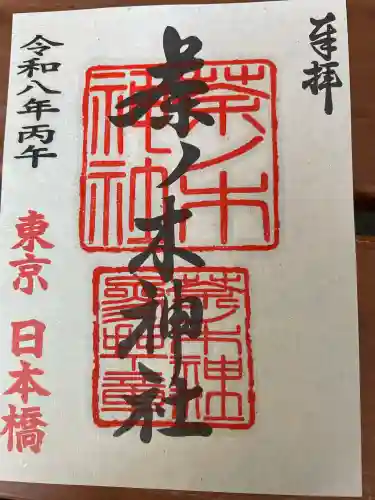 奉拝
茶ノ木神社
茶ノ木
神社
茶ノ木神
社
令和八年丙午
東京 日本橋